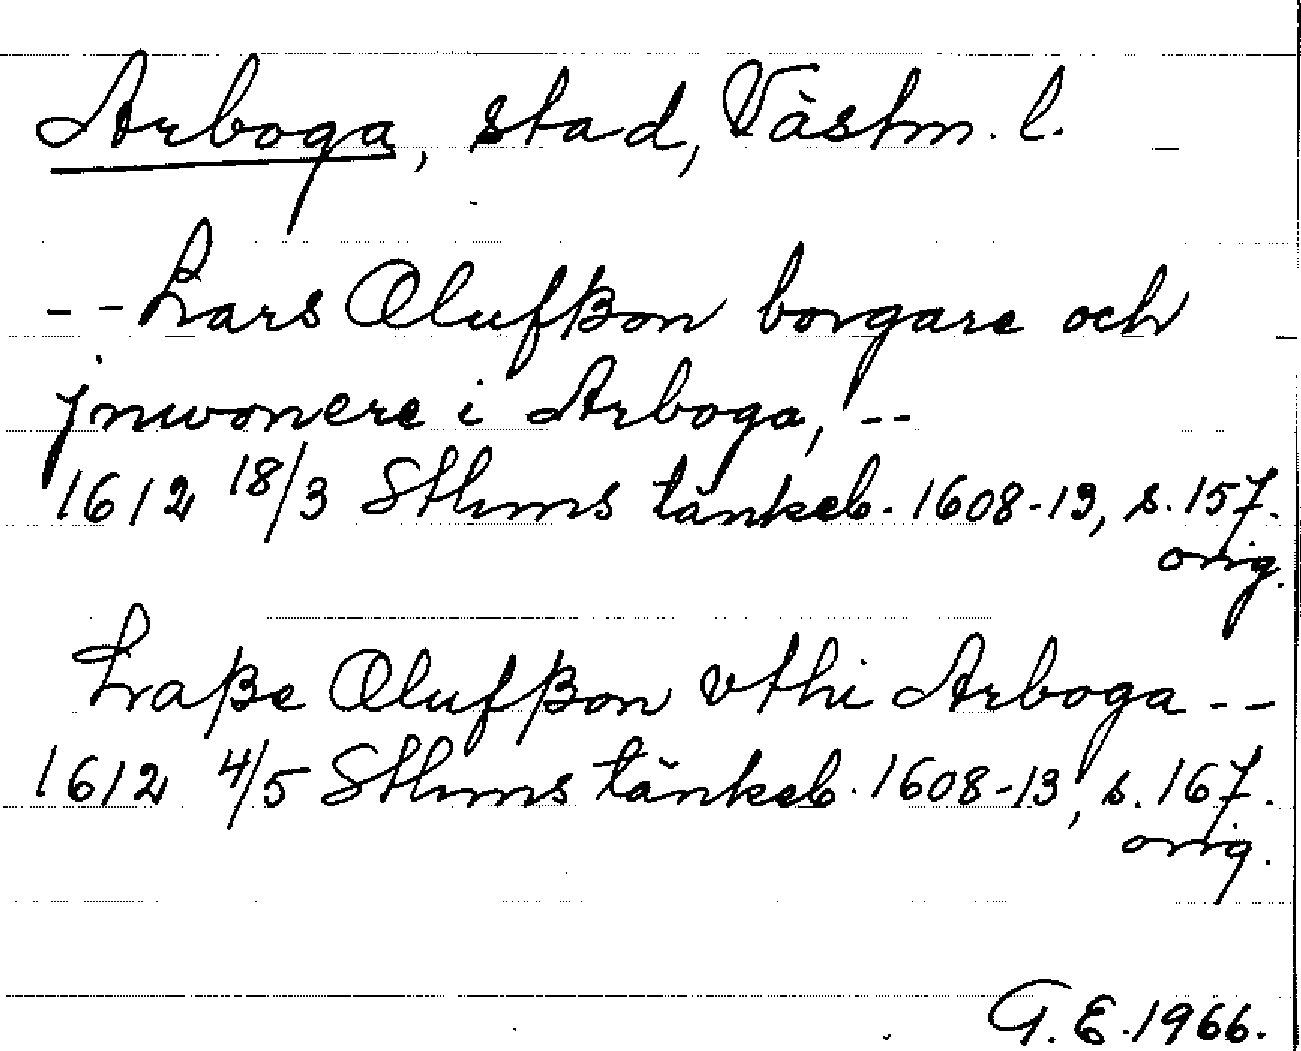 Arboga, stad, Västm. l.
-- Lars Olufßon borgare och
jnwonere i Arboga, --
1612 18/3 Sthms tänkeb. 1608-13, s. 157.
orig.
Laße Olufßon vthi Arboga --
1612 4/5 Sthms tänkeb. 1608-13, s. 167.
orig.
G. E. 1966.